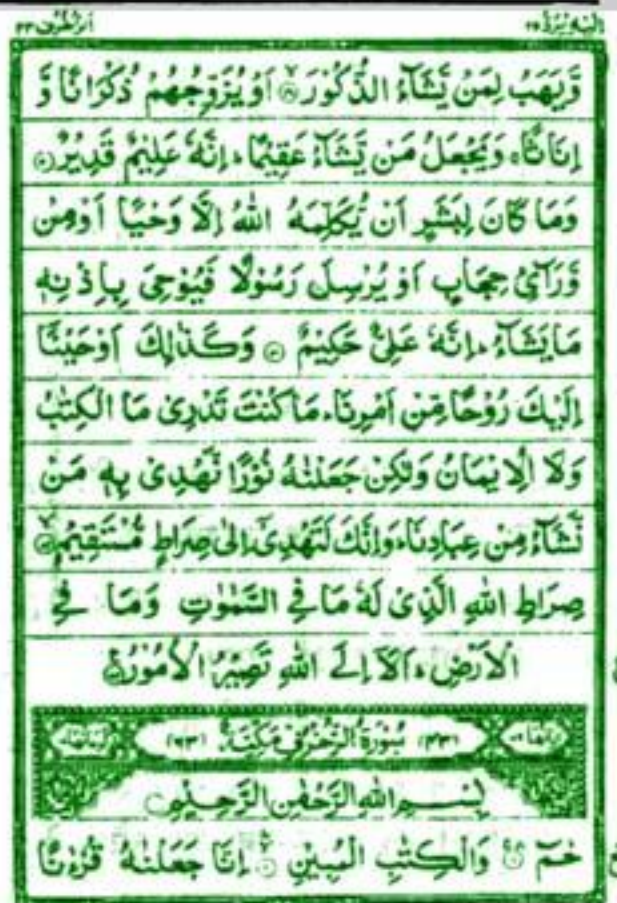 اليه يرد ٢٥ الزخرف ٤٣
وَّيَهَبُ لِمَنْ يَّشَآءُ الذُّكُوْرَ ۙ‏ اَوْ يُزَوِّجُهُمْ ذُكْرَانًا وَّ
اِنَاثًا ۚ وَيَجْعَلُ مَنْ يَّشَآءُ عَقِيْمًا ؕ اِنَّهٗ عَلِيْمٌ قَدِيْرٌ ۝
وَمَا كَانَ لِبَشَرٍ اَنْ يُّكَلِّمَهُ اللّٰهُ اِلَّا وَحْيًا اَوْ مِنْ
وَّرَآئِ حِجَابٍ اَوْ يُرْسِلَ رَسُوْلًا فَيُوْحِيَ بِاِذْنِهٖ
مَا يَشَآءُ ؕ اِنَّهٗ عَلِيٌّ حَكِيْمٌ ۝ وَكَذٰلِكَ اَوْحَيْنَآ
اِلَيْكَ رُوْحًا مِّنْ اَمْرِنَا ؕ مَا كُنْتَ تَدْرِيْ مَا الْكِتٰبُ
وَلَا الْاِيْمَانُ وَلٰكِنْ جَعَلْنٰهُ نُوْرًا نَّهْدِيْ بِهٖ مَنْ
نَّشَآءُ مِنْ عِبَادِنَا ؕ وَاِنَّكَ لَتَهْدِيْٓ اِلٰى صِرَاطٍ مُّسْتَقِيْمٍ ۝
صِرَاطِ اللّٰهِ الَّذِيْ لَهٗ مَا فِي السَّمٰوٰتِ وَمَا فِي
الْاَرْضِ ؕ اَلَآ اِلَى اللّٰهِ تَصِيْرُ الْاُمُوْرُ ۝
(٤٣) سُوْرَةُ الزُّخْرُفِ مَكِّيَّةٌ (٦٣)
بِسْمِ اللّٰهِ الرَّحْمٰنِ الرَّحِيْمِ
حٰمٓ ۝ وَالْكِتٰبِ الْمُبِيْنِ ۝ اِنَّا جَعَلْنٰهُ قُرْءٰنًا